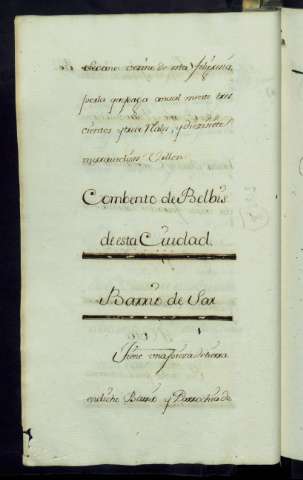 Decano vecino de esta feligresia,
porla que paga anual mente tres
cientos y tres r.s, y diez y siete
maravedises Vellon
Combento de Belbis
de esta Ciudad.
Barrio de Sar
Tiene una pieza de tierra
endicho Barrio y Parrochia de